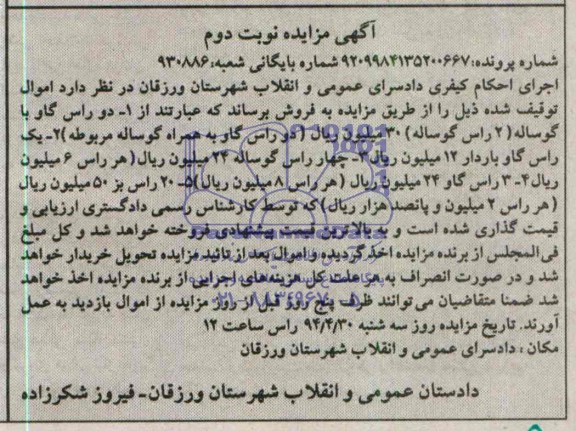 آگهی مزایده نوبت دوم
شماره پرونده:۹۲۰۹۹۸۴۱۳۵۲۰۰۶۶۷ شماره بایگانی شعبه:۹۳۰۸۸۶
اجرای احکام کیفری دادسرای عمومی و انقلاب شهرستان ورزقان در نظر دارد اموال
توقیف شده ذیل را از طریق مزایده به فروش برساند که عبارتند از ۱- دو راس گاو با
گوساله (۲ راس گوساله) ۳۰ میلیون ریال (دو راس گاو به همراه گوساله مربوطه)۲- یک
راس گاو باردار ۱۲ میلیون ریال ۳- چهار راس گوساله ۲۴ میلیون ریال (هر راس ۶ میلیون
ریال۴- ۳ راس گاو ۲۴ میلیون ریال (هر راس ۸ میلیون ریال)۵- ۲۰ راس بز ۵۰ میلیون ریال
(هر راس ۲ میلیون و پانصد هزار ریال) که توسط کارشناس رسمی دادگستری ارزیابی و
قیمت گذاری شده است و به بالاترین قیمت پیشنهادی فروخته خواهد شد و کل مبلغ
فی المجلس از برنده مزایده اخذ گردیده و اموال بعد از تائید مزایده تحویل خریدار خواهد
شد و در صورت انصراف به هر علت کل هزینه های اجرایی از برنده مزایده اخذ خواهد
شد ضمنا متقاضیان می توانند ظرف پنج روز قبل از روز مزایده از اموال بازدید به عمل
آورند. تاریخ مزایده روز سه شنبه ۹۴/۴/۳۰ راس ساعت ۱۲
مکان : دادسرای عمومی و انقلاب شهرستان ورزقان
دادستان عمومی و انقلاب شهرستان ورزقان- فیروز شکرزاده